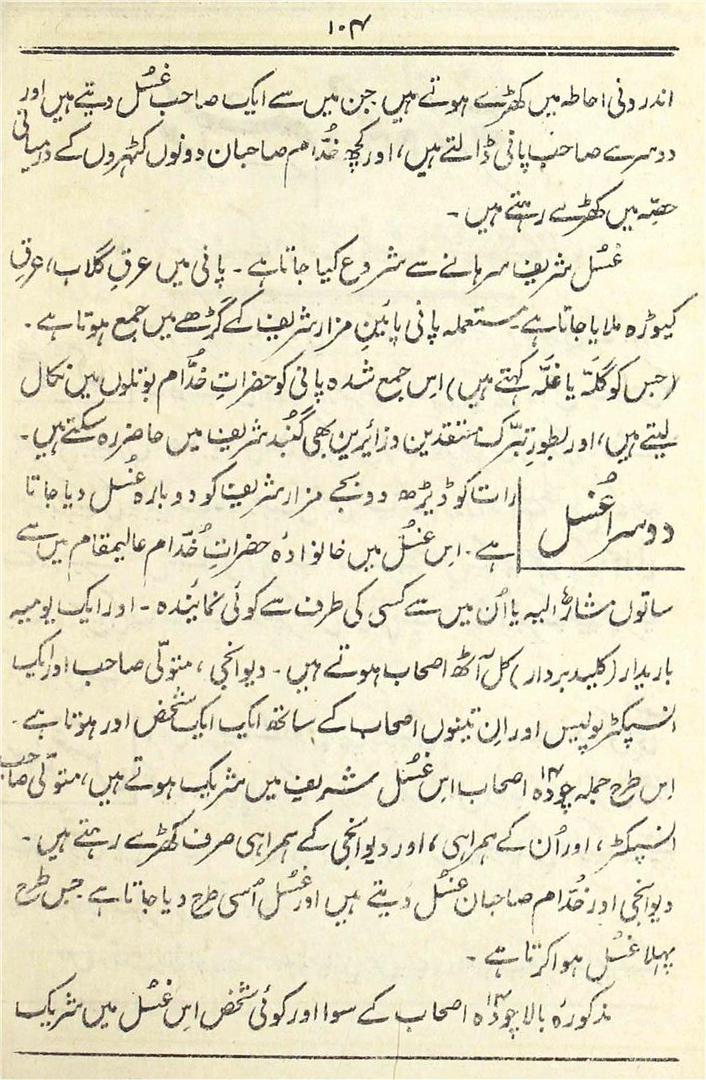 ۱۰۴
اندرونی احاطہ میں کھڑے ہوتے ہیں جن میں سے ایک صاحب غسُل دیتے ہیں اور
دوسرے صاحب پانی ڈالتے ہیں، اور کچھ خُدّام صاحبان دونوں کٹہروں کے درمیانی
حصّہ میں کھڑے رہتے ہیں۔
غسُل شریف سرہانے سے شروع کیا جاتا ہے۔ پانی میں عرقِ گلاب، عرقِ
کیوڑہ ملایا جاتا ہے۔ مستعملہ پانی پائینِ مزار شریف کے گڑھے میں جمع ہوتا ہے۔
(جس کو گلّہ یا غلّہ کہتے ہیں) اس جمع شدہ پانی کو حضراتِ خُدّام بوتلوں میں نکال
لیتے ہیں، اور بطورِ تبرّک معتقدین و زائرین بھی گنُبد شریف میں حاضر رہ سکتے ہیں۔
دوسرا غُسل
رات کو ڈیڑھ دو بجے مزار شریف کو دوبارہ غُسل دیا جاتا
ہے۔ اِس غسُل میں خانوادۂ حضراتِ خُدّام عالیمقام میں سے
ساتوں مشارٌ الیہ یا اُن میں سے کسی کی طرف سے کوئی نمائیندہ۔ اور ایک یومیہ
باریدار (کلید بردار) کل آٹھ اصحاب ہوتے ہیں۔ دیوانجی، متولّی صاحب اور ایک
انسپکٹر پولیس اور اِن تینوں اصحاب کے ساتھ ایک ایک شخص اور ہوتا ہے۔
اِس طرح جملہ چودہ ۱۴ اصحاب اِس غسُل شریف میں شریک ہوتے ہیں، متولّی صاحب
انسپکٹر، اور اُن کے ہمراہی، اور دیوانجی کے ہمراہی صرف کھڑے رہتے ہیں۔
دیوانجی اور خُدّام صاحبان غسُل دیتے ہیں اور غسُل اُسی طرح دیا جاتا ہے جس طرح
پہلا غسُل ہوا کرتا ہے۔
مذکورۂ بالا چودہ ۱۴ اصحاب کے سوا اور کوئی شخص اِس غسُل میں شریک